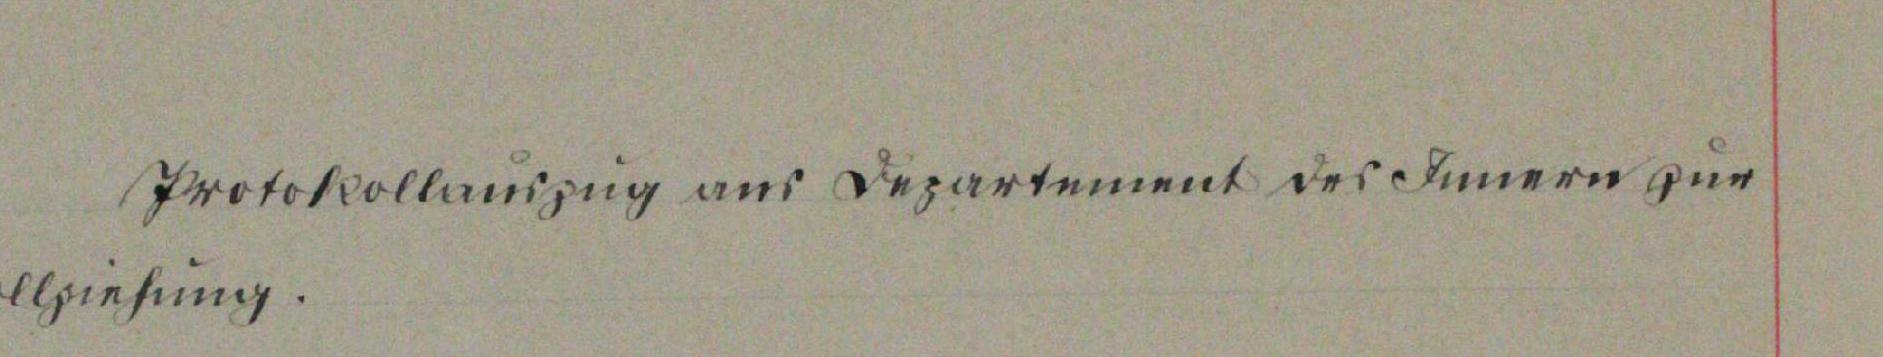 Protokollauszug ans Departement des Innern zur
ollziehung.